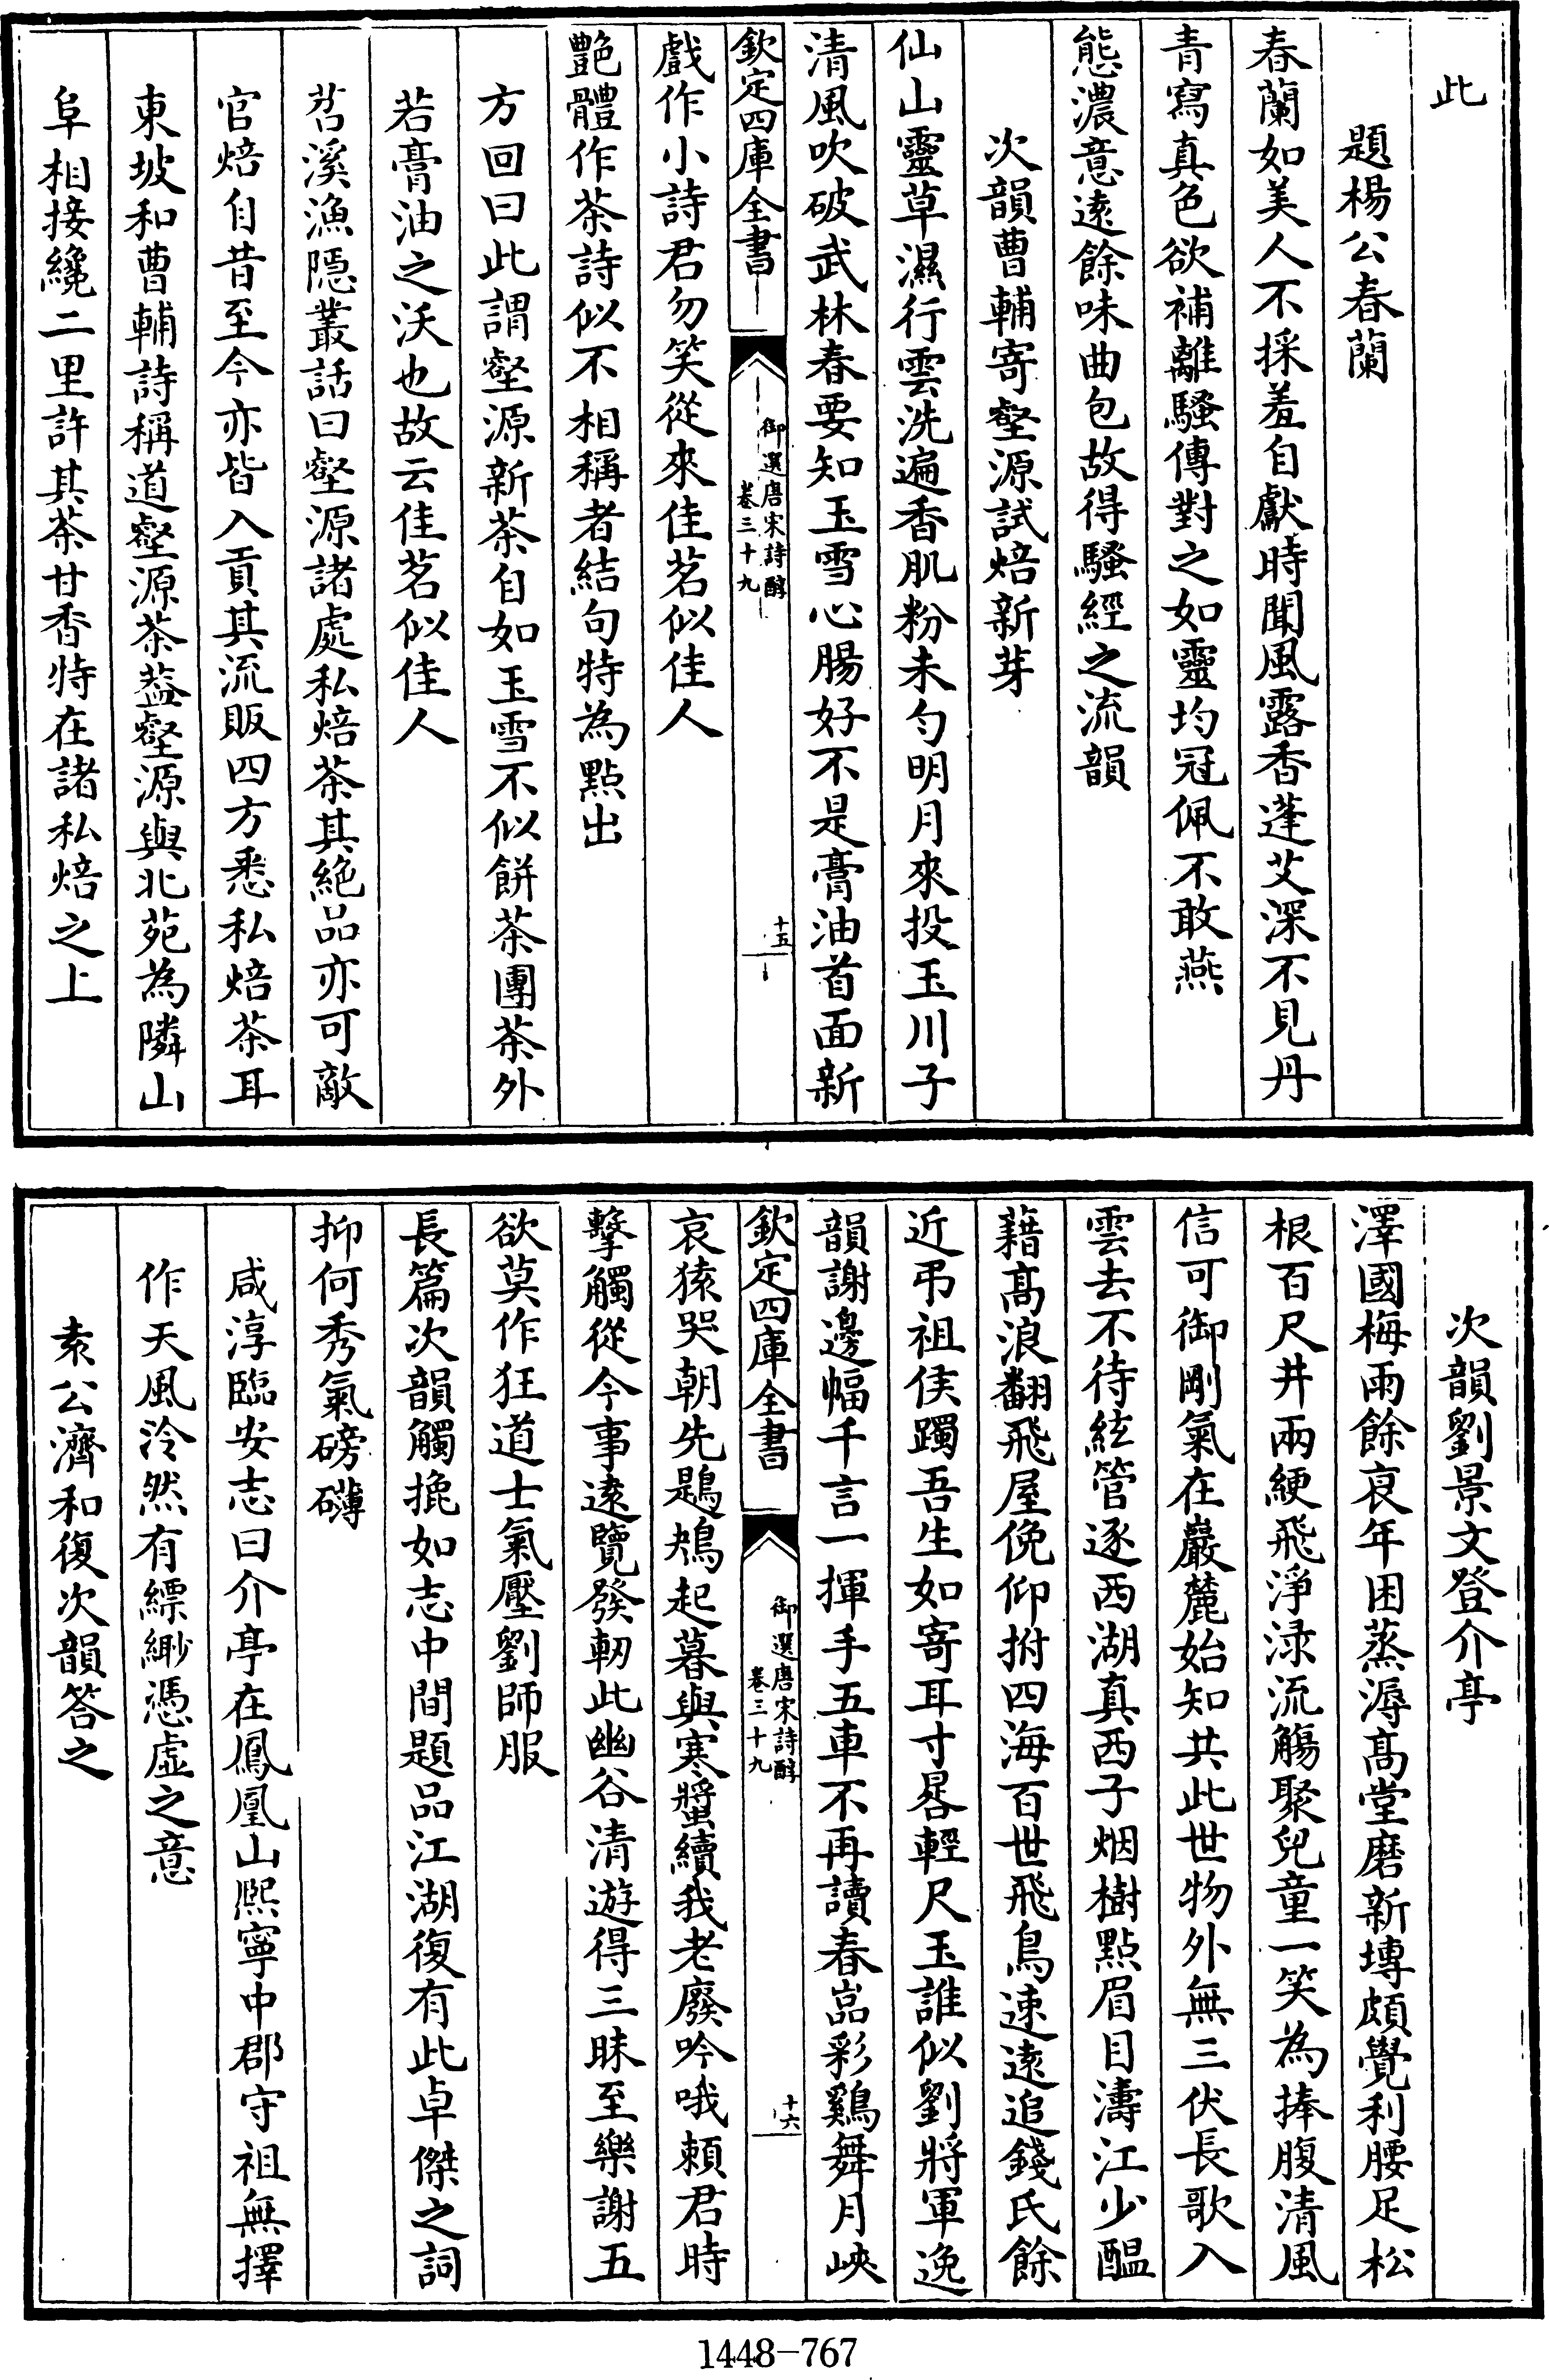 此
題楊公春蘭
春蘭如美人不採羞自獻時聞風露香蓬艾深不見丹
青寫真色欲補離騷傳對之如靈均冠佩不敢燕
態濃意遠餘味曲包故得騷經之流韻
次韻曹輔寄壑源試焙新芽
仙山靈草濕行雲洗遍香肌粉未勻明月來投玉川子
清風吹破武林春要知玉雪心腸好不是膏油首面新
欽定四庫全書
御選唐宋詩醇
卷三十九
十五
戲作小詩君勿笑從來佳茗似佳人
艷體作茶詩似不相稱者結句特為點出
方回曰此謂壑源新茶自如玉雪不似餅茶團茶外
若膏油之沃也故云佳茗似佳人
苕溪漁隱叢話曰壑源諸處私焙茶其絕品亦可敵
官焙自昔至今亦皆入貢其流販四方悉私焙茶耳
東坡和曹輔詩稱道壑源茶葢壑源與北苑為隣山
阜相接纔二里許其茶甘香特在諸私焙之上
次韻劉景文登介亭
澤國梅雨餘衰年困蒸溽高堂磨新塼頗覺利腰足松
根百尺井兩綆飛淨渌流觴聚兒童一笑為捧腹清風
信可御剛氣在巖麓始知共此世物外無三伏長歌入
雲去不待絃管逐西湖真西子烟樹點眉目濤江少醖
藉高浪翻飛屋俛仰拊四海百世飛鳥速遠追錢氏餘
近弔祖侯躅吾生如寄耳寸晷輕尺玉誰似劉將軍逸
韻謝邊幅千言一揮手五車不再讀春嵓彩鷄舞月峽
欽定四庫全書
御選唐宋詩醇
卷三十九
十六
哀猿哭朝先鶗鴂起暮與寒螿續我老廢吟哦賴君時
擊觸從今事遠覽發軔此幽谷清遊得三昧至樂謝五
欲莫作狂道士氣壓劉師服
長篇次韻觸挽如志中間題品江湖復有此卓傑之詞
抑何秀氣磅礴
咸淳臨安志曰介亭在鳳凰山熙寧中郡守祖無擇
作天風泠然有縹緲憑虛之意
袁公濟和復次韻答之
1448-767